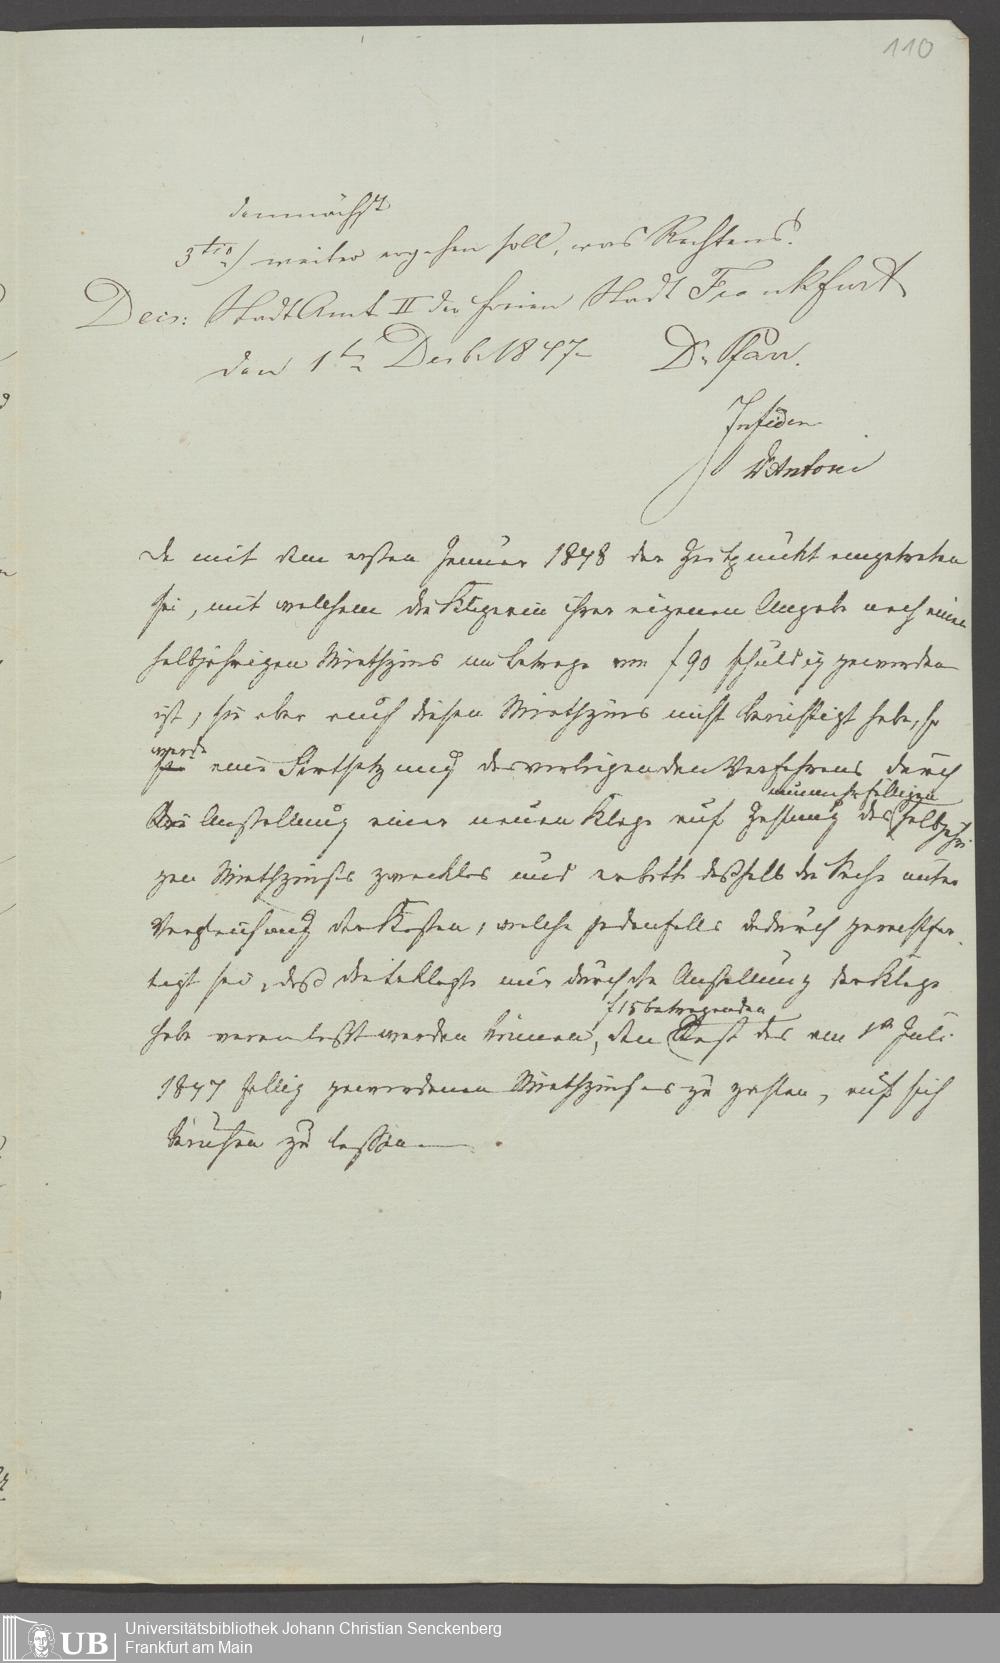 110
demnächst
3tio) weiter ergehen soll, was Rechtens.
Decr: Stadt Amt II der freien Stadt Frankfurt
den 1ten Decb. 1847. Dr.
In fidem
Dr Antoni
Da mit dem ersten Januar 1848 der Zeitpunkt eingetreten
sei, mit welchem die Klägerin ihrer eigenen Angabe nach einen
halbjährigen Miethzins im Betrage von f 90 schuldig geworden
ist, sie aber auch diesen Miethzins nicht berichtigt habe, so
werde
eine Fortsetzung des vorliegenden Verfahrens durch
nunmehr fälligen
Anstellung einer neuen Klage auf Zahlung des halbjähri
gen Miethzinses zwecklos und er bitte deßhalb die Sache unter
Vergleichung der Kosten, welche jedenfalls dadurch gerechtfer
tigt sei, daß die Beklagte nur durch die Anstellung der Klage
f 15 betragenden
habe veranlaßt werden können, den Rest des am 1ten Juli
1847 fällig gewordenen Miethzinses zu zahlen, auf sich
beruhen zu lassen.
UB
Universitätsbibliothek Johann Christian Senckenberg
Frankfurt am Main